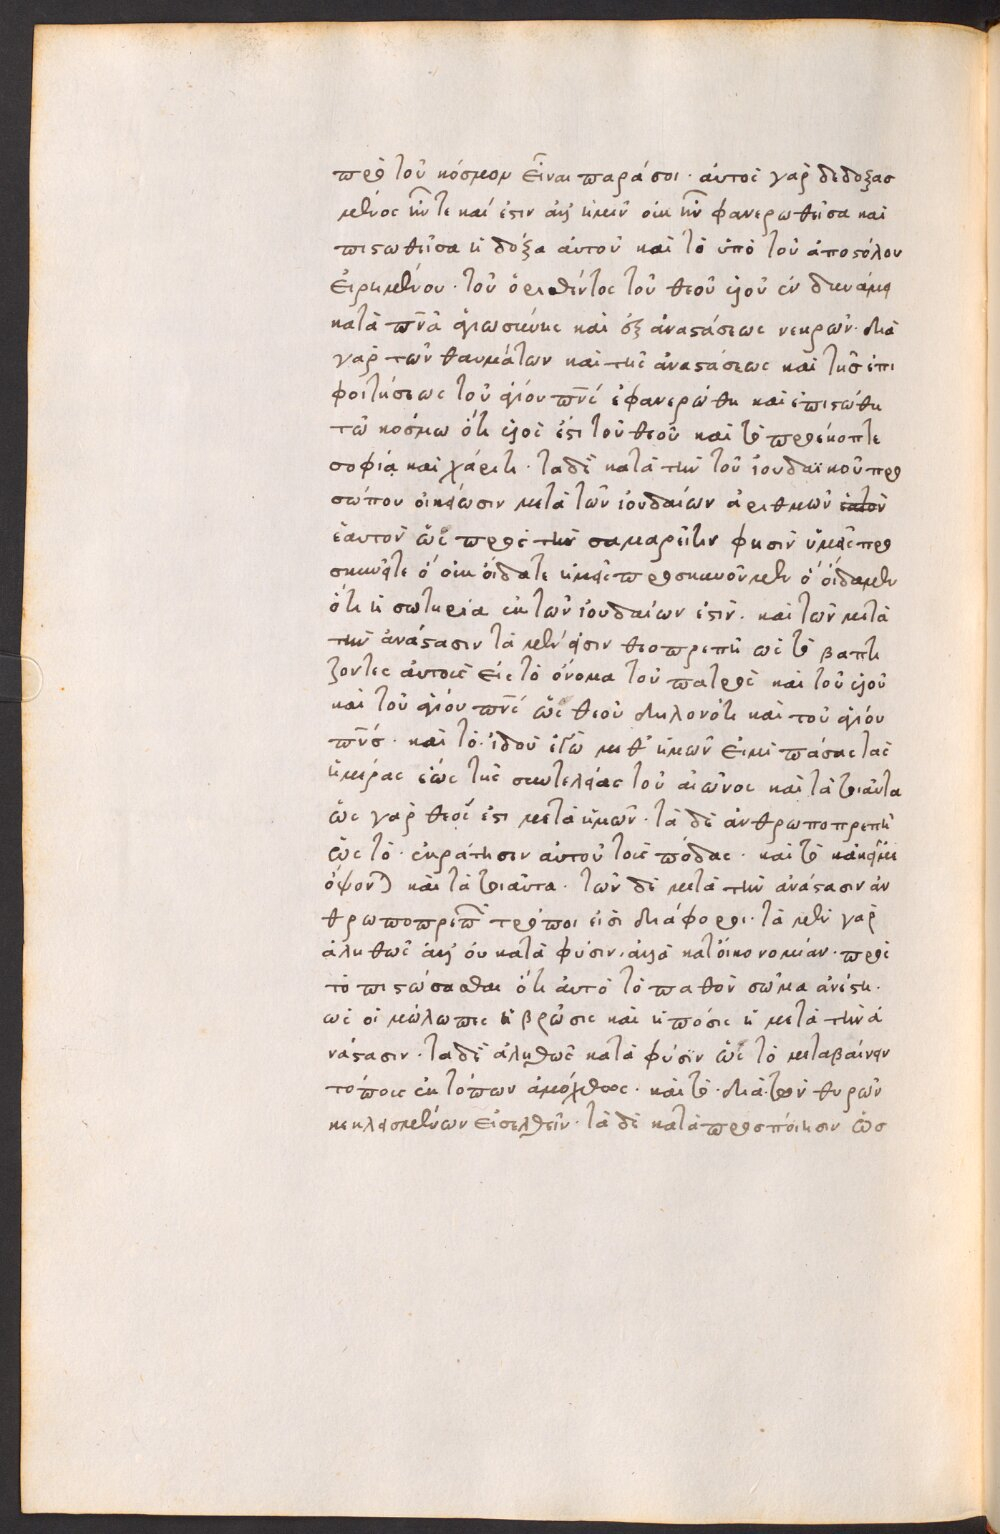 πρὸ τοῦ κόσμον εἶναι παρά σοι· αὐτὸς γὰρ δεδοξασ
μένος ἦν τε καί ἐστιν ἀλλ' ἡμῖν οὐκ ἦν φανερωθεῖσα καὶ
πιστωθεῖσα ἡ δόξα αὐτοῦ καὶ τὸ ὑπὸ τοῦ ἀποστόλου
εἰρημένου· τοῦ ὁρισθέντος τοῦ θεοῦ υἱοῦ ἐν δυνάμει
κατὰ πνᾶ ἁγιωσύνης καὶ ἐξ ἀναστάσεως νεκρῶν· διὰ
γὰρ τῶν θαυμάτων καὶ τῆς ἀναστάσεως καὶ τῆς ἐπι
φοιτήσεως τοῦ ἁγίου πνς ἐφανερώθη καὶ ἐπιστώθη
τῶ κόσμω ὅτι υἱός ἐστι τοῦ θεοῦ καὶ τὸ προέκοπτε
σοφία καὶ χάριτι· τὰ δὲ κατὰ τὴν τοῦ ἰουδαϊκοῦ προ
σώπου οἰκείωσιν μετὰ τῶν ἰουδαίων ἀριθμῶν
ἑαυτὸν ὡς πρὸς τὴν σαμαρεῖτιν φησὶν ὑμεῖς προ
σκυνεῖτε ὃ οὐκ οἴδατε ἡμεῖς προσκυνοῦμεν ὃ οἴδαμεν
ὅτι ἡ σωτηρία ἐκ τῶν ἰουδαίων ἐστίν. καὶ τῶν μετὰ
τὴν ἀνάστασιν τὰ μέν εἰσιν θεοπρεπῆ ὡς τὸ βαπτί
ζοντες αὐτοὺς εἰς τὸ ὄνομα τοῦ πατρὸς καὶ τοῦ υἱοῦ
καὶ τοῦ ἁγίου πνς ὡς θεοῦ δηλονότι καὶ τοῦ ἁγίου
πνς· καὶ τὸ· ἰδοὺ ἐγὼ μεθ' ὑμῶν εἰμι πάσας τὰς
ἡμέρας ἕως τῆς συντελείας τοῦ αἰῶνος καὶ τὰ τοιαῦτα
ὡς γὰρ θεός ἐστι μετὰ ἡμῶν· τὰ δὲ ἀνθρωποπρεπῆ
ὡς τὸ· ἐκράτησαν αὐτοῦ τοὺς πόδας· καὶ τὸ κἀκεῖ με
ὄψονται καὶ τὰ τοιαῦτα· τῶν δὲ μετὰ τὴν ἀνάστασιν ἀν
θρωποπρεπῶν τρόποι εἰσὶ διάφοροι· τὰ μὲν γὰρ
ἀληθῶς ἀλλ' οὐ κατὰ φύσιν, ἀλλὰ κατ' οἰκονομίαν· πρὸς
τὸ πιστώσασθαι ὅτι αὐτὸ τὸ παθὸν σῶμα ἀνέστη.
ὡς οἱ μώλωπες ἡ βρῶσις καὶ ἡ πόσις ἡ μετὰ τὴν ἀ
νάστασιν· τὰ δὲ ἀληθῶς κατὰ φύσιν ὡς τὸ μεταβαίνειν
τόπους ἐκ τόπων ἀμόχθως· καὶ τὸ· διὰ τῶν θυρῶν
κεκλεισμένων εἰσελθεῖν· τὰ δὲ κατὰ προσποίησιν ὡς